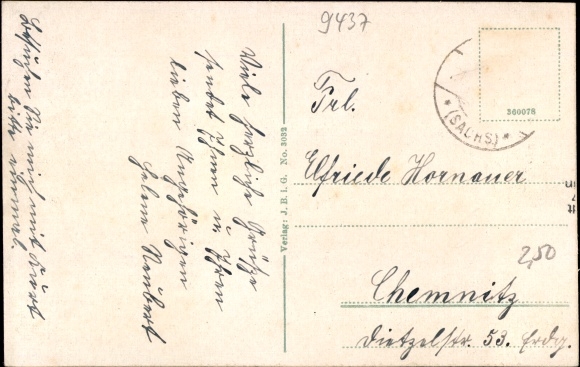 9437
360078
* (SACHS.) *
Viele herzliche Grüße
sendet Ihnen u Ihren
lieben Angehörigen
Helene Neubert
Besuchen Sie mich mit Kurt
bitte einmal.
Verlag: J. B. i. G. No. 3032
Frl.
Elfriede Hornauer
2,50
Chemnitz
Dietzelstr. 53. Erdg.